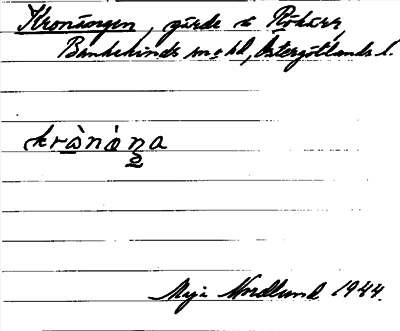 Kronängen, gärde s Rökärr,
Bankekinds sn o hd, Östergötlands l.
krànàṉa
Maja Nordlund 1944.